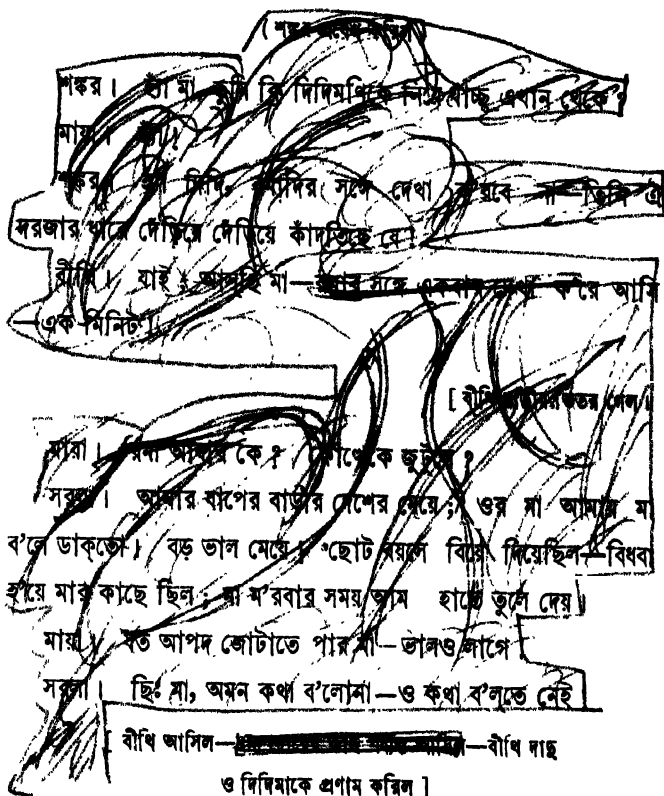 ( শঙ্কর প্রবেশ করিল )
শঙ্কর। হ্যাঁ মা, তুমি কি দিদিমণিকে নিয়ে যাচ্ছ এখান থেকে ?
মায়া। হ্যাঁ।
শঙ্কর। দিদি, দিদির সঙ্গে দেখা ক'রবে না—তিনি ঐ
দরজার ধারে দাঁড়িয়ে দাঁড়িয়ে কাঁদতিছে যে।
বীথি। যাই ; আসছি মা— সঙ্গে একবার দেখা ক'রে আসি
—এক মিনিট।
[ বীথি ভিতর গেল।
মায়া। আবার কে ? কোত্থেকে জুটলো ?
সরলা। আমার বাপের বাড়ীর দেশের মেয়ে ; ওর মা আমায় মা
ব'লে ডাক্‌তো। বড় ভাল মেয়ে। ছোট বয়সে বিয়ে দিয়েছিল—বিধবা
হ'য়ে মার কাছে ছিল ; মা ম'রবার সময় আমার হাতে তুলে দেয়।
মায়া। যত আপদ জোটাতে পার মা—ভালও লাগে।
সরলা। ছিঃ মা, অমন কথা ব'লোনা—ও কথা ব'লতে নেই
[ বীথি আসিল— —বীথি দাদু
ও দিদিমাকে প্রণাম করিল ]